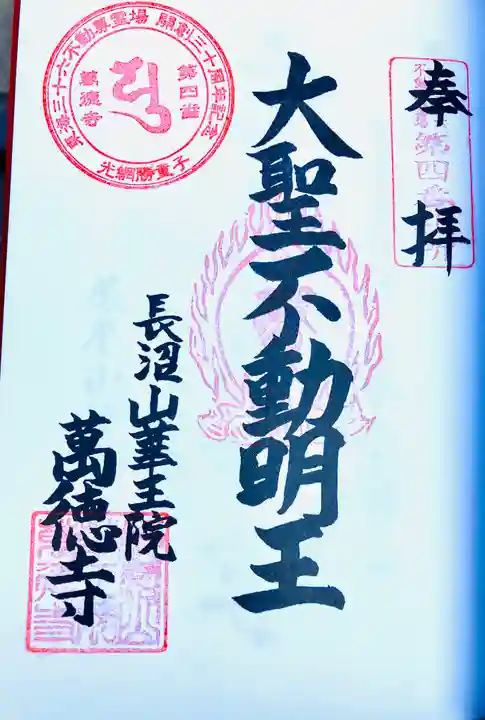 奉拝
第四番
大聖不動明王
長沼山華王院
萬徳寺
東海三十六不動尊霊場 開創三十周年記念
第四番
萬徳寺
光網勝童子